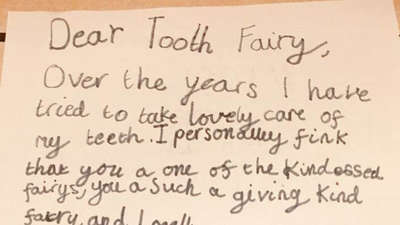 Dear Tooth Fairy,
Over the years I have
tried to take lovely care of
my teeth. I personalley fink
that you a one of the kindessed
fairys, you a such a giving kind
fairy, and I